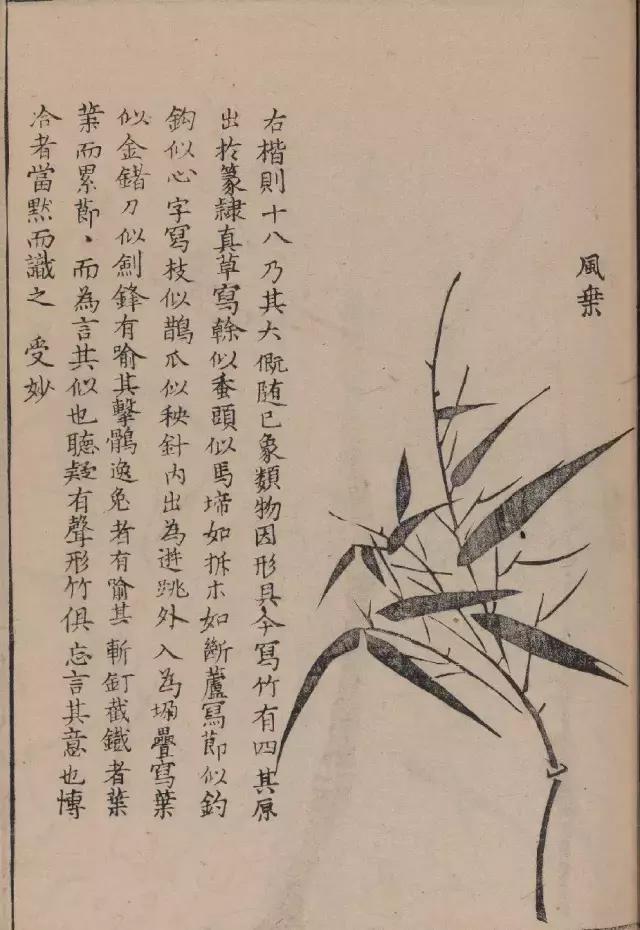 風葉
右楷則十八乃其大概随已象類物因形具今寫竹有四其原
出於篆隸真草寫榦似蚕頭似馬蹄如拆木如斷蘆寫節似釣
鈎似心字寫枝似鵲爪似秧針内出為迸跳外入為垜疊寫葉
似金鍺刀似劍鋒有喻其擊鶻逸兔者有喻其斬釘截鐵者葉
葉而累節、而為言其似也聽疑有聲形竹俱忘言其意也博
冾者當黙而識之 受妙